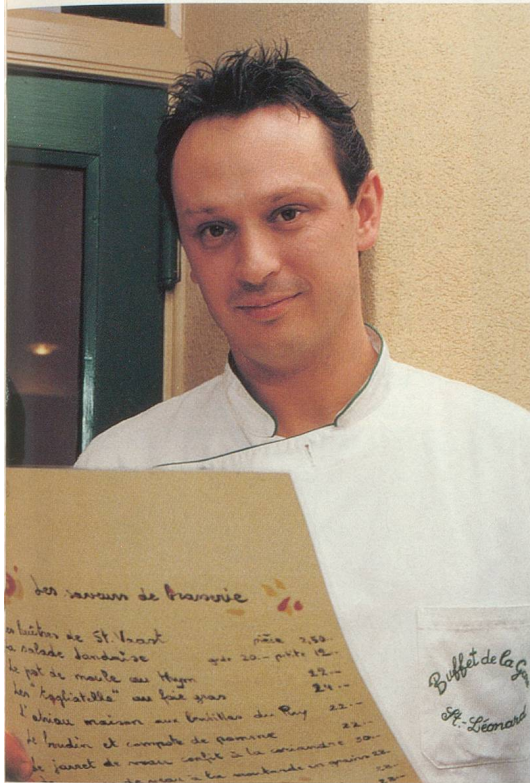 Les saveurs de Brasserie
es huîtres de St. Vaast pièce 2,50
a salade landaise gde 20.- petite 12.-
Le pot de moule au thym 22.-
Les "tagliatelle" au foie gras 24.-
maison aux lentilles du Puy 22.-
Le boudin et compote de pomme 22.-
Le jarret de confit à la coriandre
de veau à la moutarde en grains 22.-
Buffet de la Gare
St.-Léonard